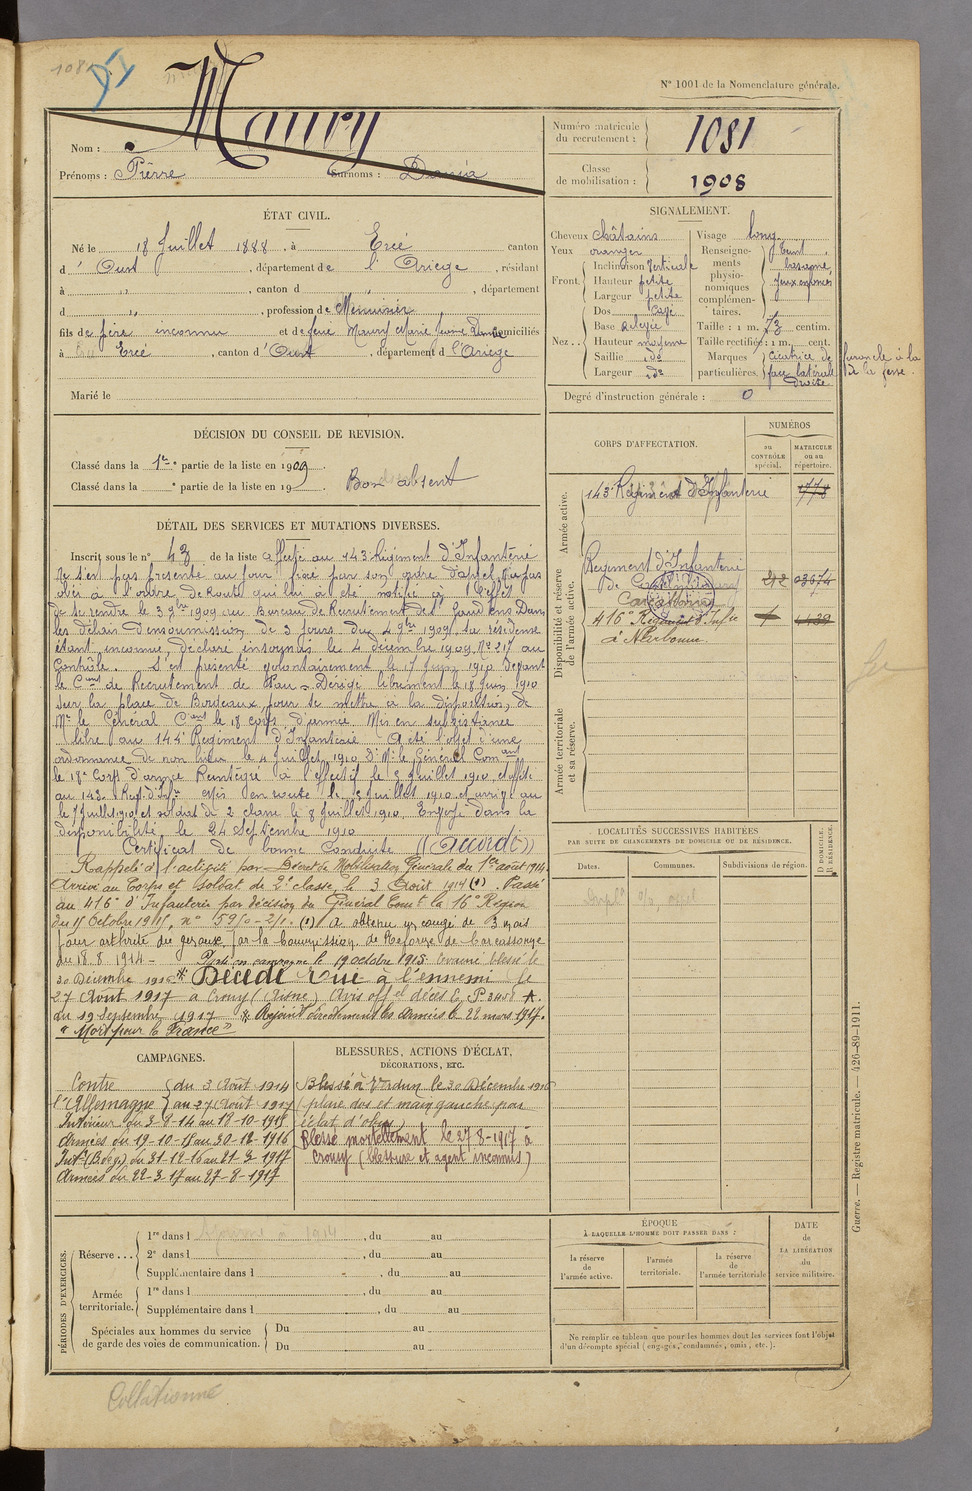 1081
N° 1001 de la Nomenclature générale.
Nom : Maury
Prénoms : Pierre Surnoms :
Numéro matricule du recrutement : 1081
Classe de mobilisation : 1908
ÉTAT CIVIL.
Né le 18 Juillet 1888, à Ercé canton
d'Oust, département de l'Ariège, résidant
à ", canton d ", département
d ", profession de Menuisier
fils de père inconnu et de feue Maury Marie Jeanne domiciliés
à Ercé, canton d'Oust, département d l'Ariège
Marié le
SIGNALEMENT.
Cheveux châtains
Yeux oranger
Front Inclinaison Verticale
Hauteur petite
Largeur petite
Nez Dos Cave
Base relevée
Hauteur moyenne
Saillie do
Largeur do
Visage long
Renseignements physionomiques complémentaires. Teint basané, yeux enfoncés
Taille : 1 m. 73 centim.
Taille rectifiée : 1 m. cent.
Marques particulières. Cicatrice de furoncle à la face latérale de la fesse droite
Degré d'instruction générale : 0
DÉCISION DU CONSEIL DE REVISION.
Classé dans la 1re partie de la liste en 1909
Classé dans la e partie de la liste en 19
Bon absent
DÉTAIL DES SERVICES ET MUTATIONS DIVERSES.
Inscrit sous le n° 43 de la liste affecté au 143 Régiment d'Infanterie
Ne s'est pas présenté au jour fixé par son ordre d'appel n'a pas
obéi à l'ordre de Route qui lui a été notifié à l'effet
de se rendre le 3 9bre 1909 au Bureau de Recrutement de St Gaudens Dans
les délais d'insoumission de 3 jours du 4 9bre 1909 sa résidence
étant inconnue, déclaré insoumis le 4 décembre 1909 No 217 au
Contrôle. S'est présenté volontairement le 17 Juin 1910 devant
le Cant de Recrutement de Pau - Dirigé librement le 18 juin 1910
sur la place de Bordeaux pour se mettre à la disposition de
Mr le Général Cant le 18 corps d'armée Mis en subsistance
libre au 144 Régiment d'Infanterie - A été l'objet d'une
ordonnance de non lieu le 4 Juillet 1910 d'Mr le Général Comant
le 18e Corps d'armée Réintégré à l'effectif le 5 Juillet 1910, et affté
au 143 Regt d'Infie Mis en route le 5 Juillet 1910 et arrivé au
le 7 Juillet 1910 et soldat de 2 classe le 8 Juillet 1910. Envoyé dans la
disponibilité le 24 Septembre 1910
Certificat de bonne Conduite "Accordé"
Rappelé à l'activité par Décret de Mobilisation Générale du 1er août 1914
Arrivé au Corps et soldat de 2e classe, le 3 Août 1914 (1). Passé
au 416e d'Infanterie par décision du Général Comt la 16e Région
du 15 Octobre 1915, n° 5950-2/1. (1) A obtenu un congé de 3 mois
pour arthrite du genoux, par la Commission de Réforme de Carcassonne
du 18.8 1914 - Parti en campagne le 19 octobre 1915. Evacué blessé le
30 Décembre 1916 * Décédé Tué à l'ennemi le
27 Août 1917 à Crouy (Aisne) Avis offel décès
du 19 Septembre 1917 * Rejoint directement les Armées le 22 mars 1917.
"Mort pour la France"
CORPS D'AFFECTATION.
NUMÉROS
au CONTRÔLE spécial.
MATRICULE ou au répertoire.
Armée active.
143e Régiment d'Infanterie 778
Disponibilité et réserve de l'armée active.
Régiment d'Infanterie
de Carcassonne
416e Régiment d'Infie
à Narbonne.
Armée territoriale et sa réserve.
LOCALITÉS SUCCESSIVES HABITÉES
PAR SUITE DE CHANGEMENTS DE DOMICILE OU DE RÉSIDENCE.
Dates.
Communes.
Subdivisions de région.
D DOMICILE. R RÉSIDENCE.
CAMPAGNES.
Contre l'Allemagne du 3 Août 1914
au 27 Août 1917
Intérieur du 3-8-14 au 18-10-1915
Armées du 19-10-15 au 30-12-1916
Intr (B. de g.) du 31-12-16 au 21-3-1917
Armées du 22-3-17 au 27-8-1917
BLESSURES, ACTIONS D'ÉCLAT,
DÉCORATIONS, ETC.
Blessé à Verdun le 30 Décembre 1916
(plaie dos et main gauche par
éclat d'obus)
Blessé mortellement le 27-8-1917 à
Crouy (blessure et agent inconnus)
PÉRIODES D'EXERCICES.
Réserve ...
1re dans l , du au
2e dans l , du au
Supplémentaire dans l , du au
Armée territoriale.
1re dans l , du au
Supplémentaire dans l , du au
Spéciales aux hommes du service de garde des voies de communication.
Du au
Du au
ÉPOQUE
À LAQUELLE L'HOMME DOIT PASSER DANS :
la réserve de l'armée active.
l'armée territoriale.
la réserve de l'armée territoriale
DATE de LA LIBÉRATION du service militaire.
Ne remplir ce tableau que pour les hommes dont les services font l'objet
d'un décompte spécial (engagés, condamnés, omis, etc.).
Guerre. — Registre matricule. — 426-89-1911.
Collationné